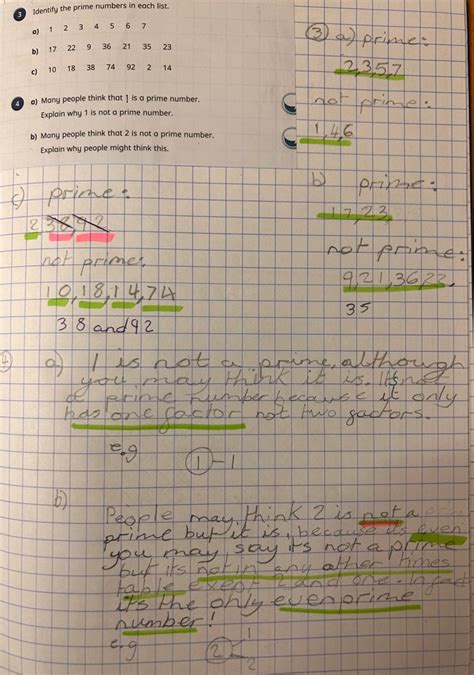 3 Identify the prime numbers in each list.
a) 1 2 3 4 5 6 7
b) 17 22 9 36 21 35 23
c) 10 18 38 74 92 2 14
4 a) Many people think that 1 is a prime number.
Explain why 1 is not a prime number.
b) Many people think that 2 is not a prime number.
Explain why people might think this.
3 a) prime:
2,3,5,7
not prime:
1,4,6
b) prime:
17,23,
not prime:
9,21,36,22,
35
c) prime:
2,38,92
not prime:
10,18,14,74
38 and 92
a) 1 is not a prime, although
you may think it is. Its not
a prime number because it only
has one factor not two factors.
e.g
1-1
b)
People may think 2 is not a
prime but it is, because its even
you may say its not a prime
but its not in any other times
table exept 2 and one. In fact
its the only even prime
number!
e.g
2 1
2